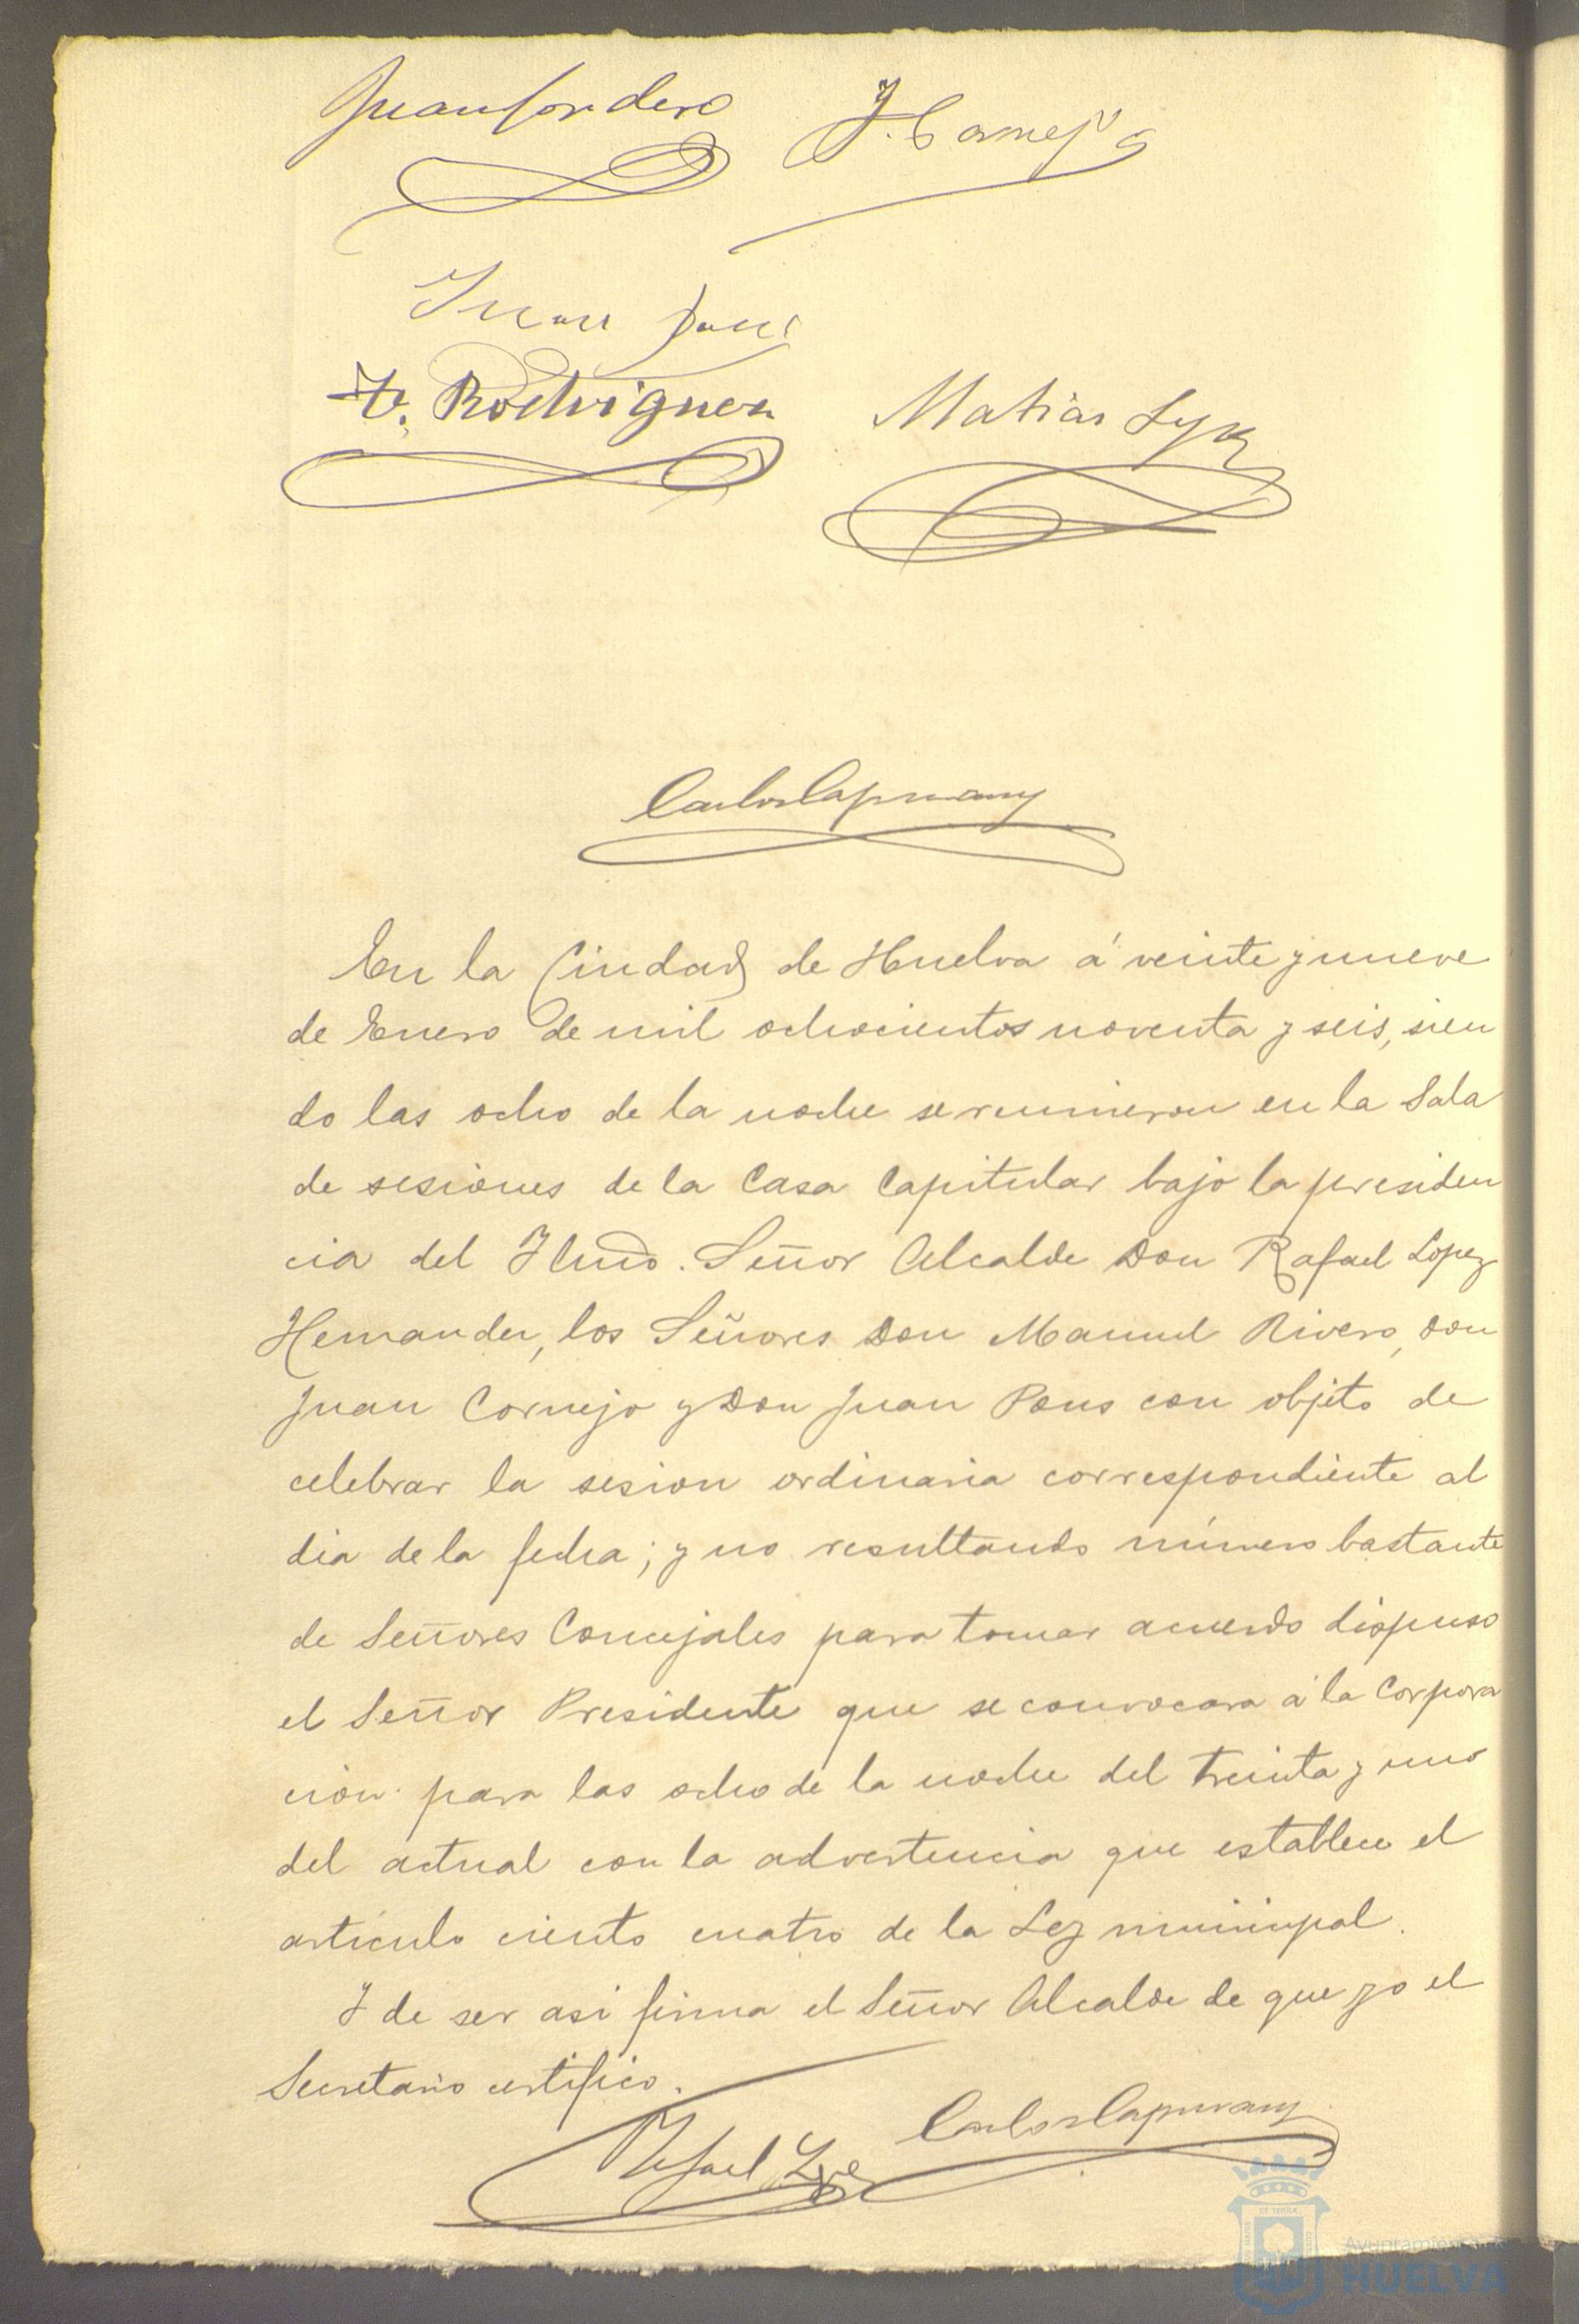 Juan Cordero J. Cornejo
Juan Pons
F. Rodriguez Matias López
Carlos Capmany
En la Ciudad de Huelva á veinte y nueve
de Enero de mil ochocientos noventa y seis, sien
do las ocho de la noche se reunieron en la Sala
de sesiones de la Casa Capitular bajo la presiden
cia del Iltmo. Señor Alcalde Don Rafael Lopez
Hernandez, los Señores Don Manuel Rivero, Don
Juan Cornejo y Don Juan Pons con objeto de
celebrar la sesion ordinaria correspondiente al
dia de la fecha; y no resultando número bastante
de Señores Concejales para tomar acuerdo dispuso
el Señor Presidente que se convocara á la Corpora
cion para las ocho de la noche del treinta y uno
del actual con la advertencia que establece el
artículo ciento cuatro de la Ley municipal.
Y de ser asi firma el Señor Alcalde de que yo el
Secretario certifico.
Rafael Lopez Carlos Capmany
Ayuntamiento de
HUELVA